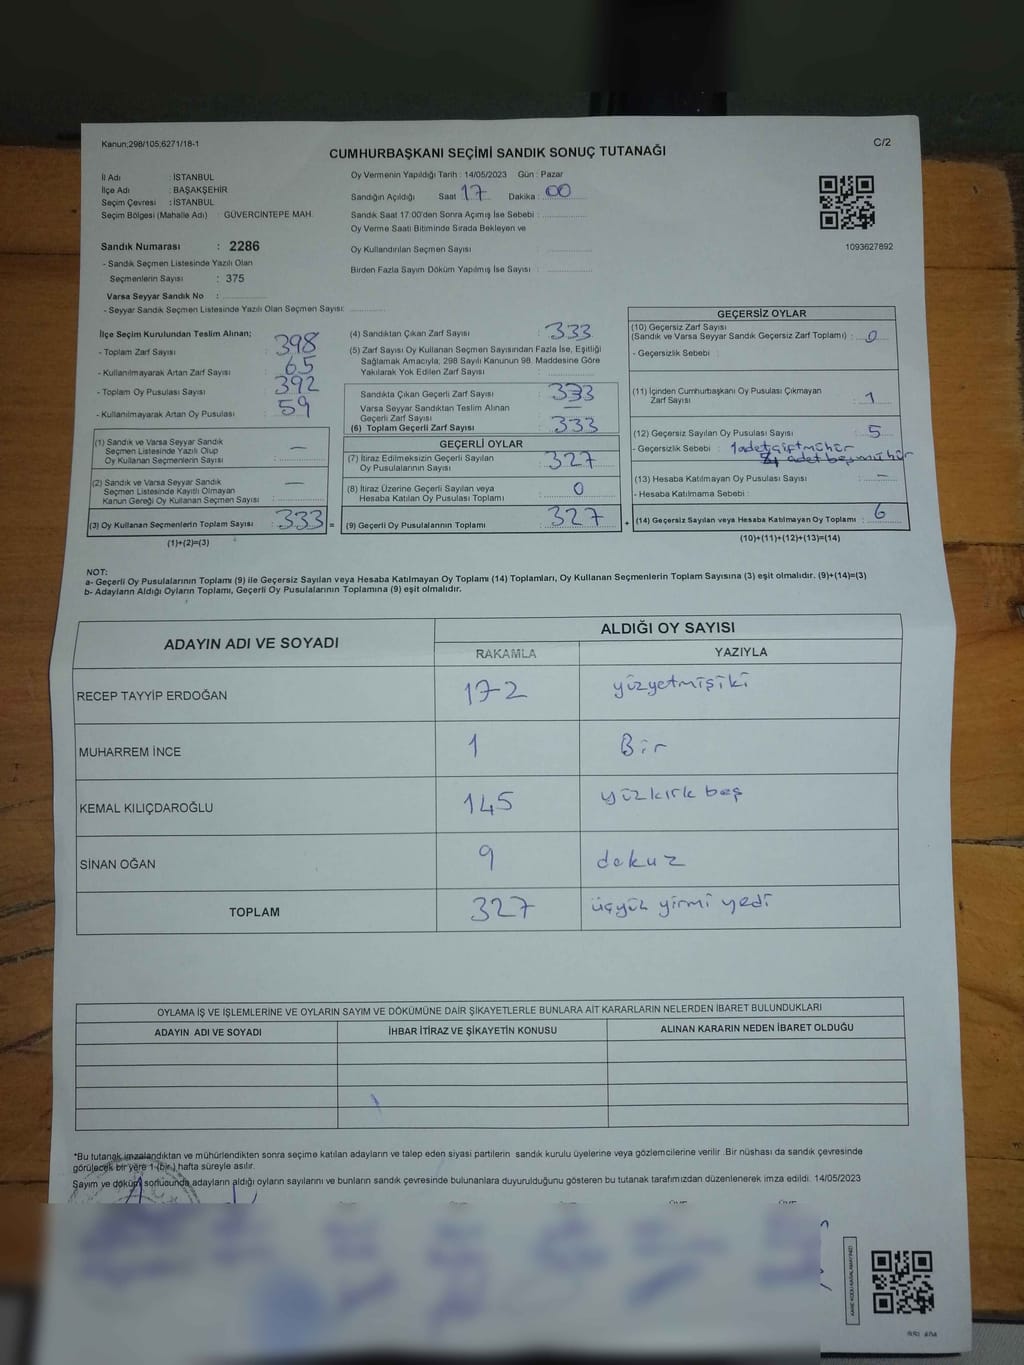 Kanun;298/105,6271/18-1
C/2
CUMHURBAŞKANI SEÇİMİ SANDIK SONUÇ TUTANAĞI
İl Adı : İSTANBUL
İlçe Adı : BAŞAKŞEHİR
Seçim Çevresi : İSTANBUL
Seçim Bölgesi (Mahalle Adı) : GÜVERCİNTEPE MAH.
Sandık Numarası : 2286
- Sandık Seçmen Listesinde Yazılı Olan
Seçmenlerin Sayısı : 375
Varsa Seyyar Sandık No :
- Seyyar Sandık Seçmen Listesinde Yazılı Olan Seçmen Sayısı:
Oy Vermenin Yapıldığı Tarih : 14/05/2023 Gün : Pazar
Sandığın Açıldığı Saat 17 Dakika : 00
Sandık Saat 17.00'den Sonra Açımış İse Sebebi :
Oy Verme Saati Bitiminde Sırada Bekleyen ve
Oy Kullandırılan Seçmen Sayısı :
Birden Fazla Sayım Döküm Yapılmış İse Sayısı :
1093627892
İlçe Seçim Kurulundan Teslim Alınan;
- Toplam Zarf Sayısı : 398
- Kullanılmayarak Artan Zarf Sayısı : 65
- Toplam Oy Pusulası Sayısı : 392
- Kullanılmayarak Artan Oy Pusulası : 59
(1) Sandık ve Varsa Seyyar Sandık
Seçmen Listesinde Yazılı Olup
Oy Kullanan Seçmenlerin Sayısı : —
(2) Sandık ve Varsa Seyyar Sandık
Seçmen Listesinde Kayıtlı Olmayan
Kanun Gereği Oy Kullanan Seçmen Sayısı : —
(3) Oy Kullanan Seçmenlerin Toplam Sayısı : 333 =
(1)+(2)=(3)
(4) Sandıktan Çıkan Zarf Sayısı : 333
(5) Zarf Sayısı Oy Kullanan Seçmen Sayısından Fazla İse, Eşitliği
Sağlamak Amacıyla, 298 Sayılı Kanunun 98. Maddesine Göre
Yakılarak Yok Edilen Zarf Sayısı :
Sandıkta Çıkan Geçerli Zarf Sayısı : 333
Varsa Seyyar Sandıktan Teslim Alınan
Geçerli Zarf Sayısı : —
(6) Toplam Geçerli Zarf Sayısı : 333
GEÇERLİ OYLAR
(7) İtiraz Edilmeksizin Geçerli Sayılan
Oy Pusulalarının Sayısı : 327
(8) İtiraz Üzerine Geçerli Sayılan veya
Hesaba Katılan Oy Pusulası Toplamı : 0
(9) Geçerli Oy Pusulalarının Toplamı : 327 +
GEÇERSİZ OYLAR
(10) Geçersiz Zarf Sayısı
(Sandık ve Varsa Seyyar Sandık Geçersiz Zarf Toplamı) : 0
- Geçersizlik Sebebi :
(11) İçinden Cumhurbaşkanı Oy Pusulası Çıkmayan
Zarf Sayısı : 1
(12) Geçersiz Sayılan Oy Pusulası Sayısı : 5
- Geçersizlik Sebebi : 1 adet çift mühür
4 adet beş mühür
(13) Hesaba Katılmayan Oy Pusulası Sayısı : —
- Hesaba Katılmama Sebebi :
(14) Geçersiz Sayılan veya Hesaba Katılmayan Oy Toplamı : 6
(10)+(11)+(12)+(13)=(14)
NOT:
a- Geçerli Oy Pusulalarının Toplamı (9) ile Geçersiz Sayılan veya Hesaba Katılmayan Oy Toplamı (14) Toplamları, Oy Kullanan Seçmenlerin Toplam Sayısına (3) eşit olmalıdır. (9)+(14)=(3)
b- Adayların Aldığı Oyların Toplamı, Geçerli Oy Pusulalarının Toplamına (9) eşit olmalıdır.
ADAYIN ADI VE SOYADI
ALDIĞI OY SAYISI
RAKAMLA YAZIYLA
RECEP TAYYİP ERDOĞAN 172 yüzyetmişiki
MUHARREM İNCE 1 Bir
KEMAL KILIÇDAROĞLU 145 yüzkırk beş
SİNAN OĞAN 9 dokuz
TOPLAM 327 üçyüz yirmi yedi
OYLAMA İŞ VE İŞLEMLERİNE VE OYLARIN SAYIM VE DÖKÜMÜNE DAİR ŞİKAYETLERLE BUNLARA AİT KARARLARIN NELERDEN İBARET BULUNDUKLARI
ADAYIN ADI VE SOYADI İHBAR İTİRAZ VE ŞİKAYETİN KONUSU ALINAN KARARIN NEDEN İBARET OLDUĞU
*Bu tutanak imzalandıktan ve mühürlendikten sonra seçime katılan adayların ve talep eden siyasi partilerin sandık kurulu üyelerine veya gözlemcilerine verilir. Bir nüshası da sandık çevresinde
görülecek bir yere 1 (bir) hafta süreyle asılır.
Sayım ve döküm sonucunda adayların aldığı oyların sayılarını ve bunların sandık çevresinde bulunanlara duyurulduğunu gösteren bu tutanak tarafımızdan düzenlenerek imza edildi. 14/05/2023